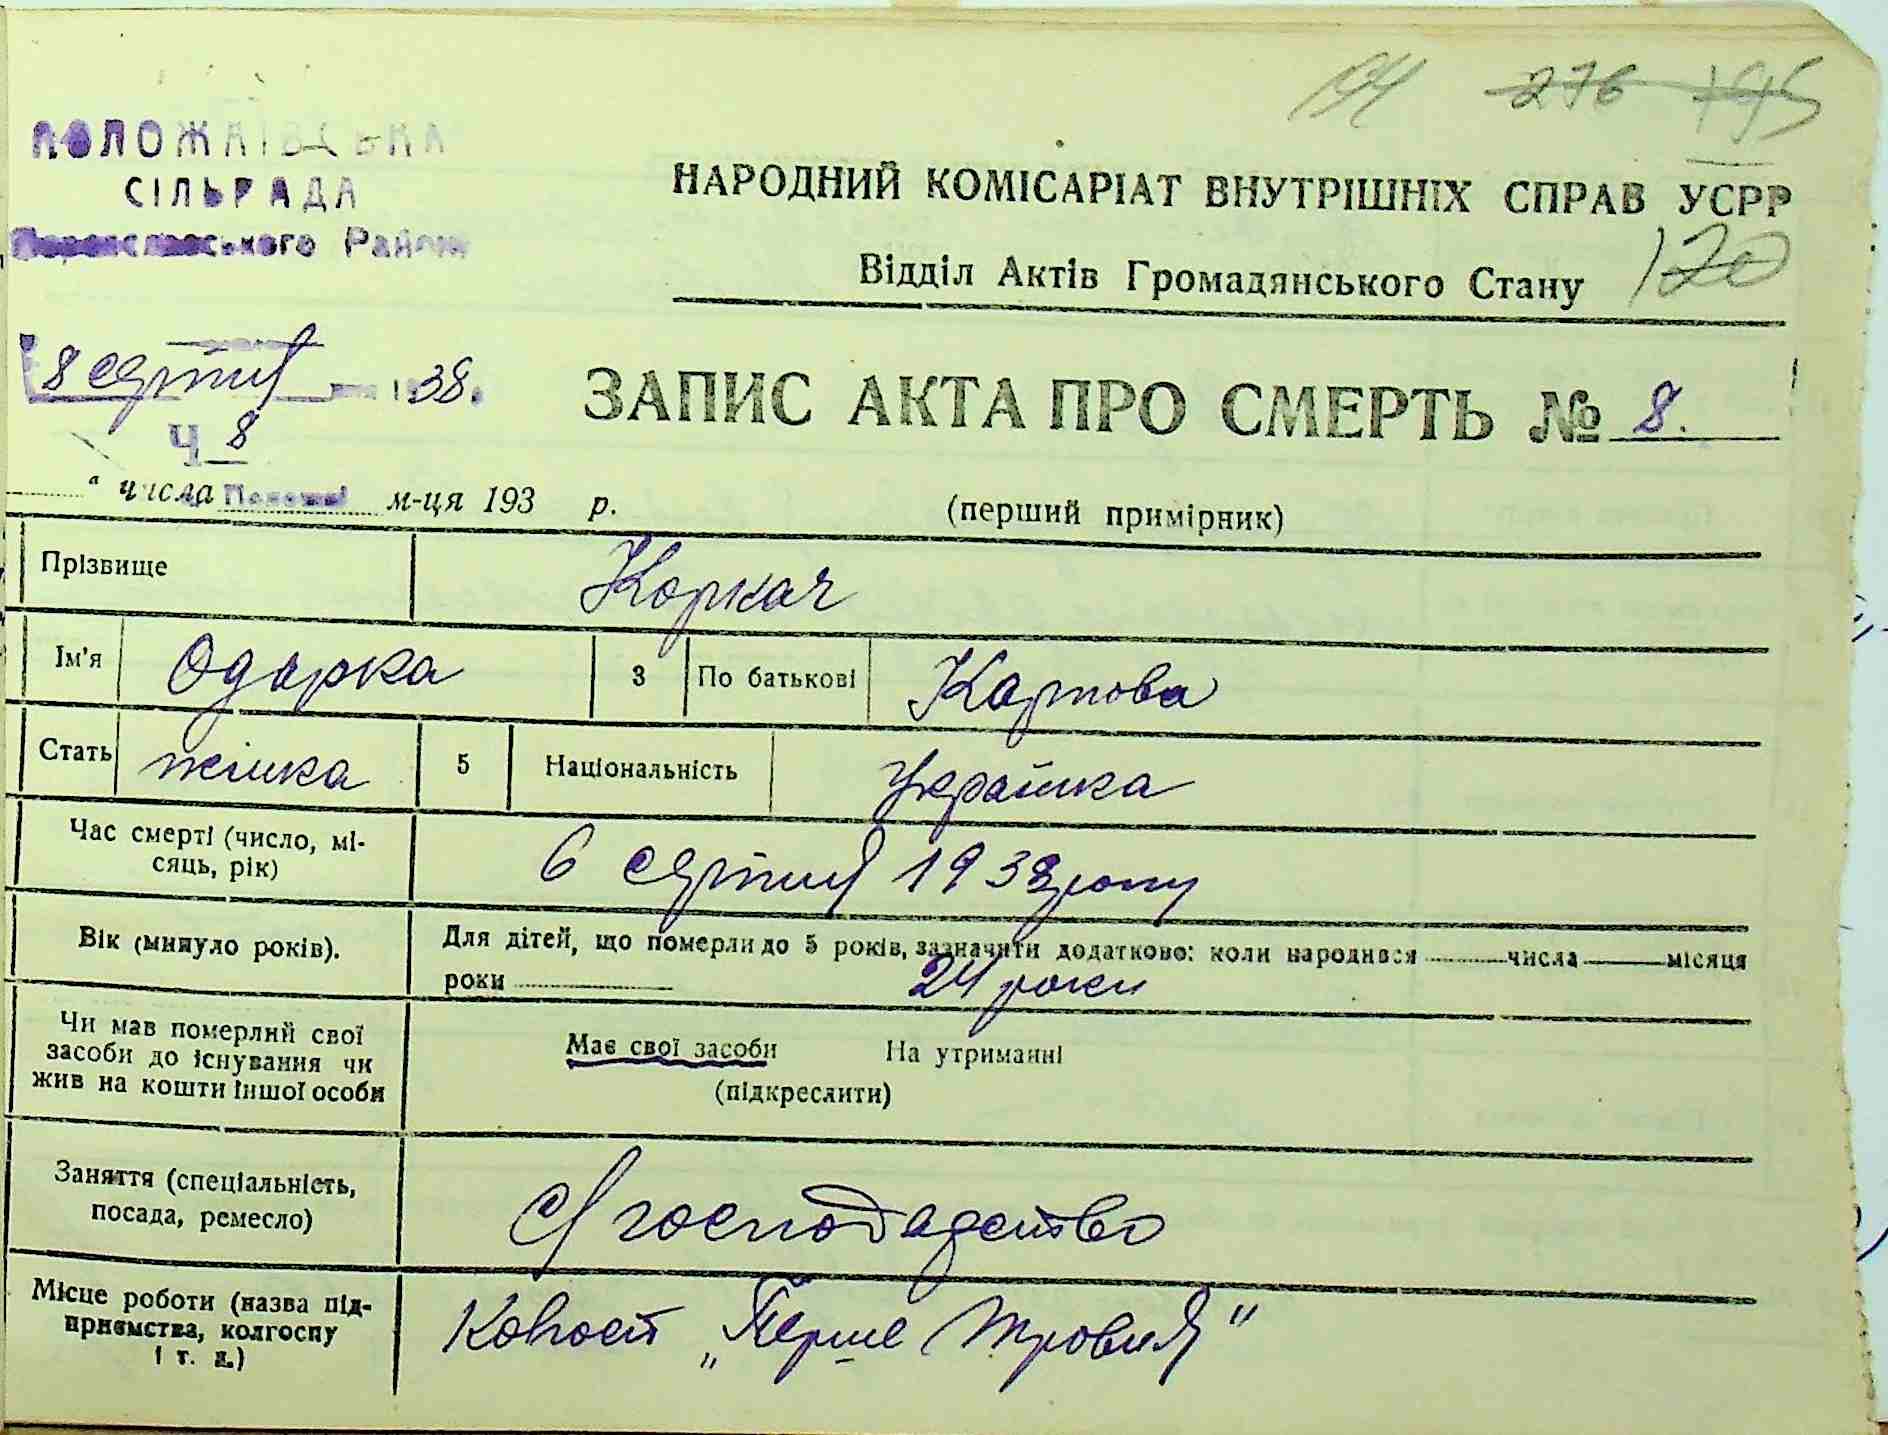 194 276 195
ПОЛОЖАЇВСЬКА
СІЛЬРАДА
Переяславського Району
НАРОДНИЙ КОМІСАРІАТ ВНУТРІШНІХ СПРАВ УСРР
Відділ Актів Громадянського Стану 120
8 серпня 1938.
Ч 8
ЗАПИС АКТА ПРО СМЕРТЬ № 8.
" числа м-ця 193 р.
(перший примірник)
Прізвище Коркач
Ім'я Одарка 3 По батькові Карпова
Стать жінка 5 Національність Українка
Час смерті (число, мі-
сяць, рік) 6 серпня 1938 року
Вік (минуло років). Для дітей, що померли до 5 років, зазначити додатково: коли народився числа місяця
роки 24 роки
Чи мав померлий свої
засоби до існування чи
жив на кошти іншої особи
Має свої засоби На утриманні
(підкреслити)
Заняття (спеціальність,
посада, ремесло) С/господарство
Місце роботи (назва під-
приємства, колгоспу
і т. д.) Колгосп „Перше Травня"